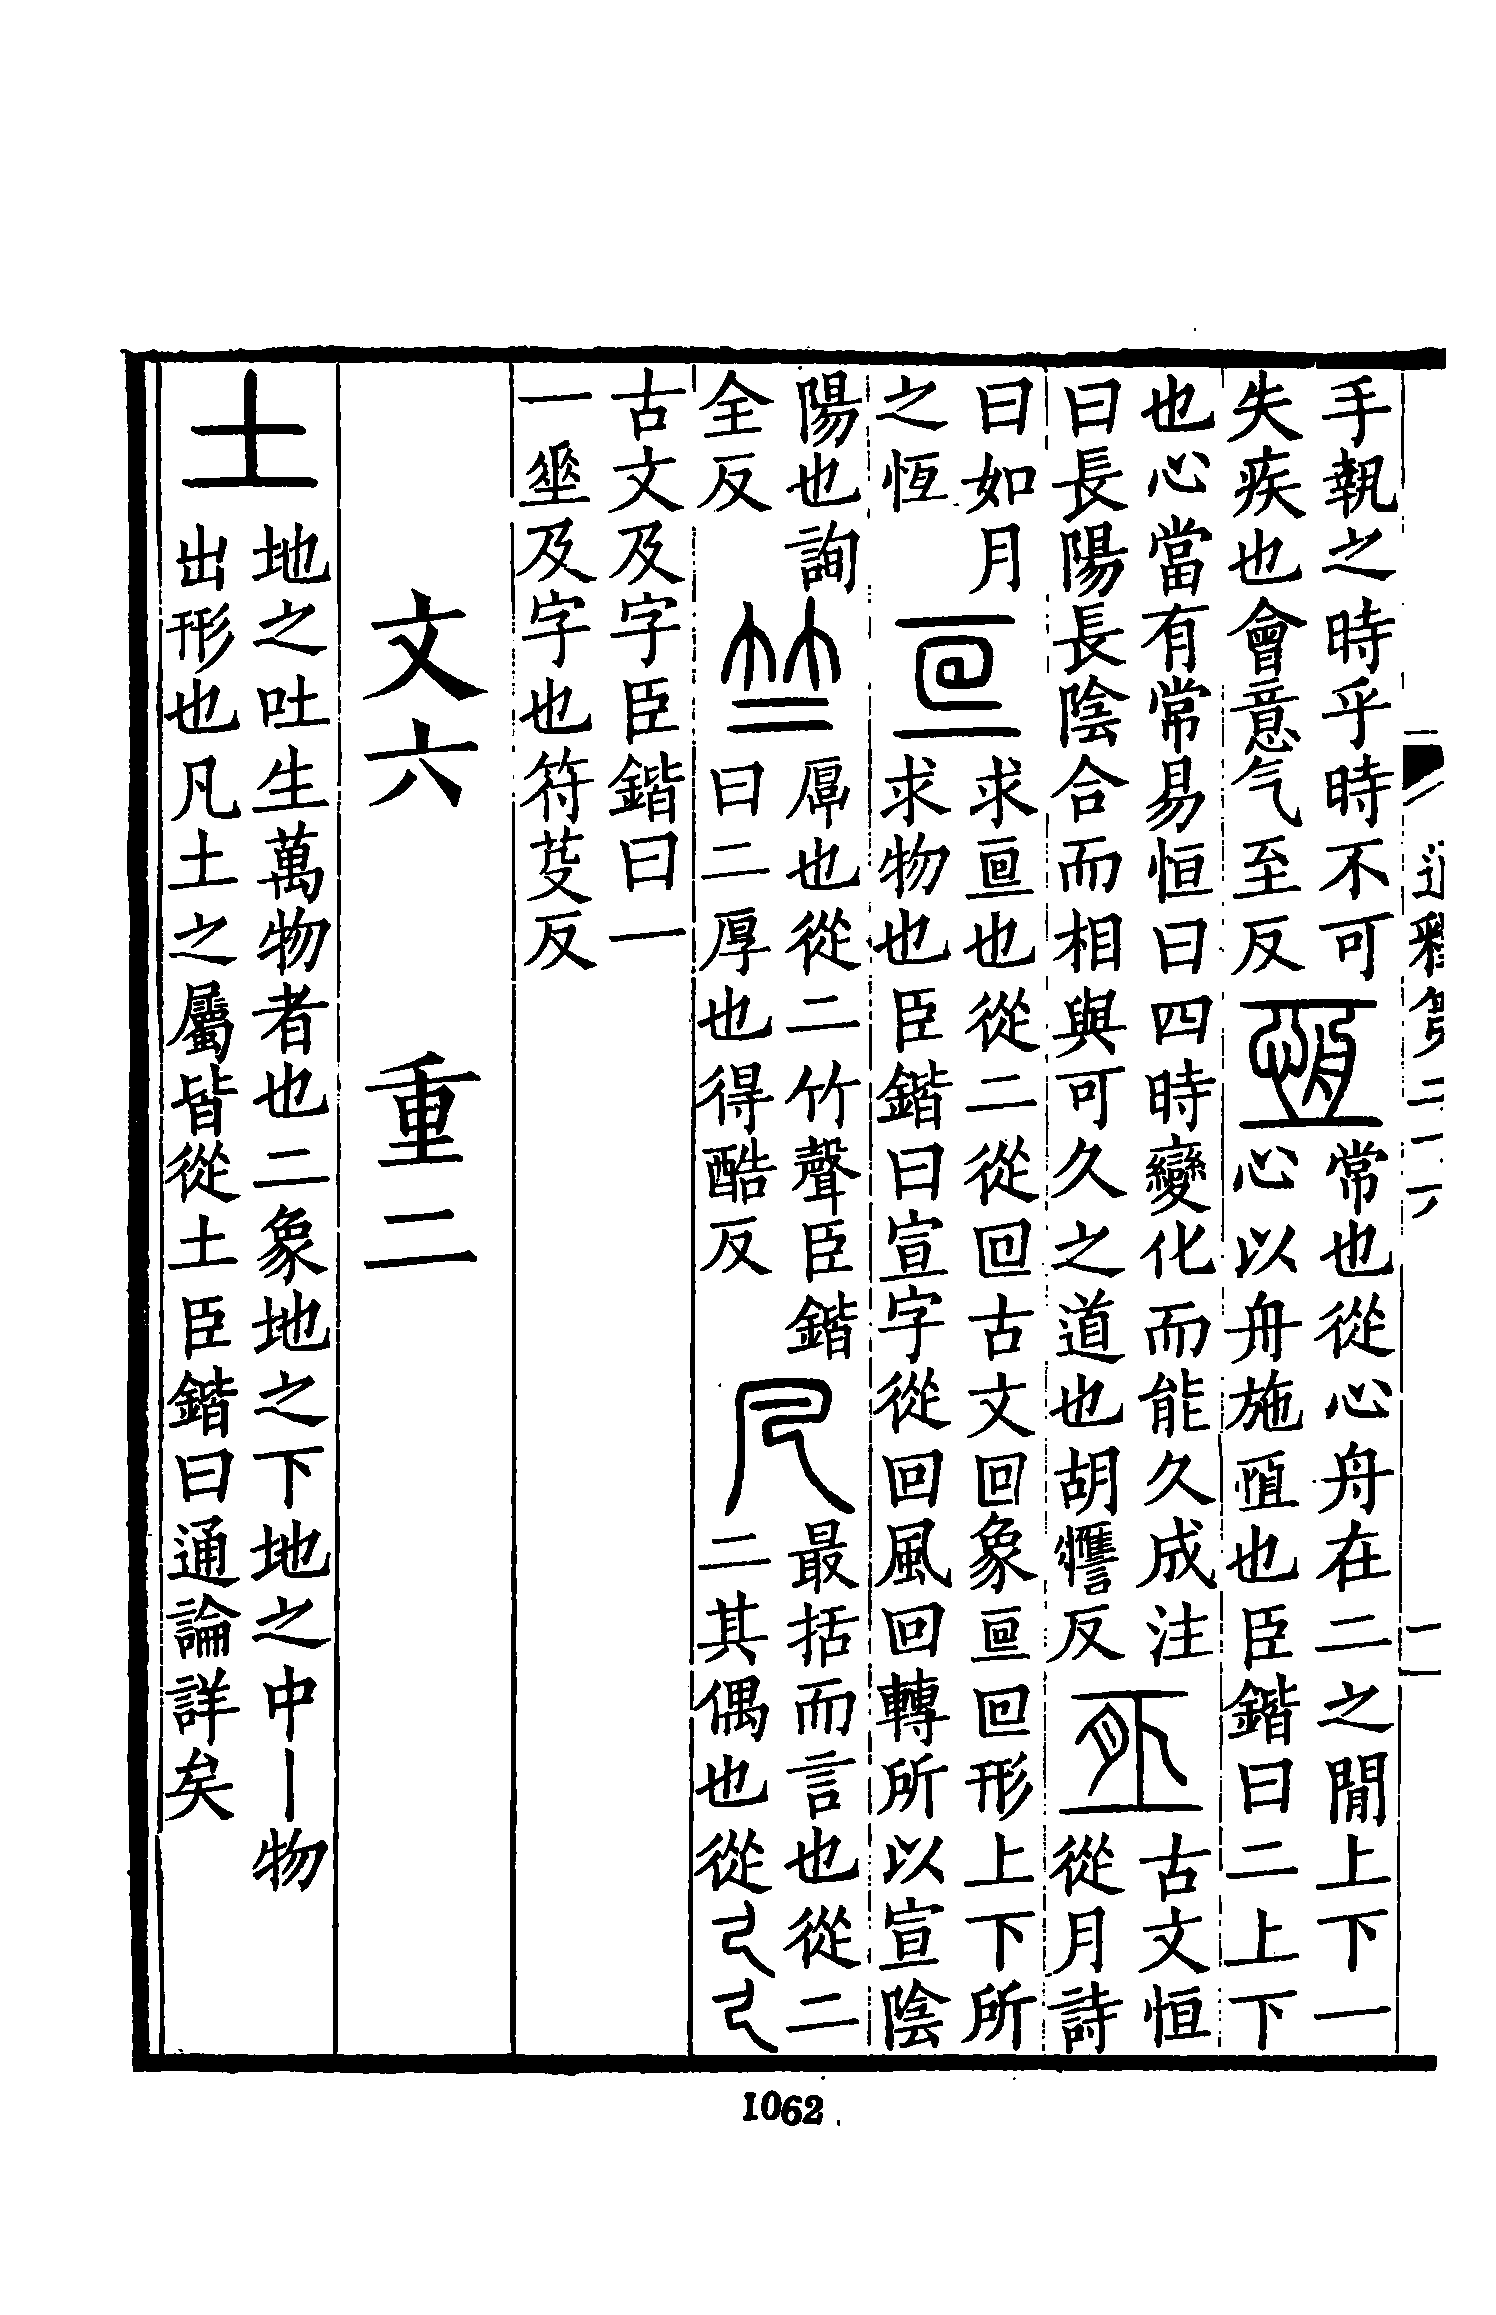 手執之時乎時不可
失疾也會意气至反
恆
常也從心舟在二之閒上下一
心以舟施恆也臣鍇曰二上下
也心當有常易恒曰四時變化而能久成注
曰長陽長陰合而相與可久之道也胡反
古文恒
從月詩
曰如月
之恆
亘
求亘也從二從囘古文回象亘回形上下所
求物也臣鍇曰宣字從回風回轉所以宣陰
陽也詢
全反
竺
厚也從二竹聲臣鍇
曰二厚也得酷反
凡
最括而言也從二
二其偶也從乁乁
古文及字臣鍇曰一
一坐及字也符芟反
文六　重二
土
地之吐生萬物者也二象地之下地之中丨物
出形也凡土之屬皆從土臣鍇曰通論詳矣
1062